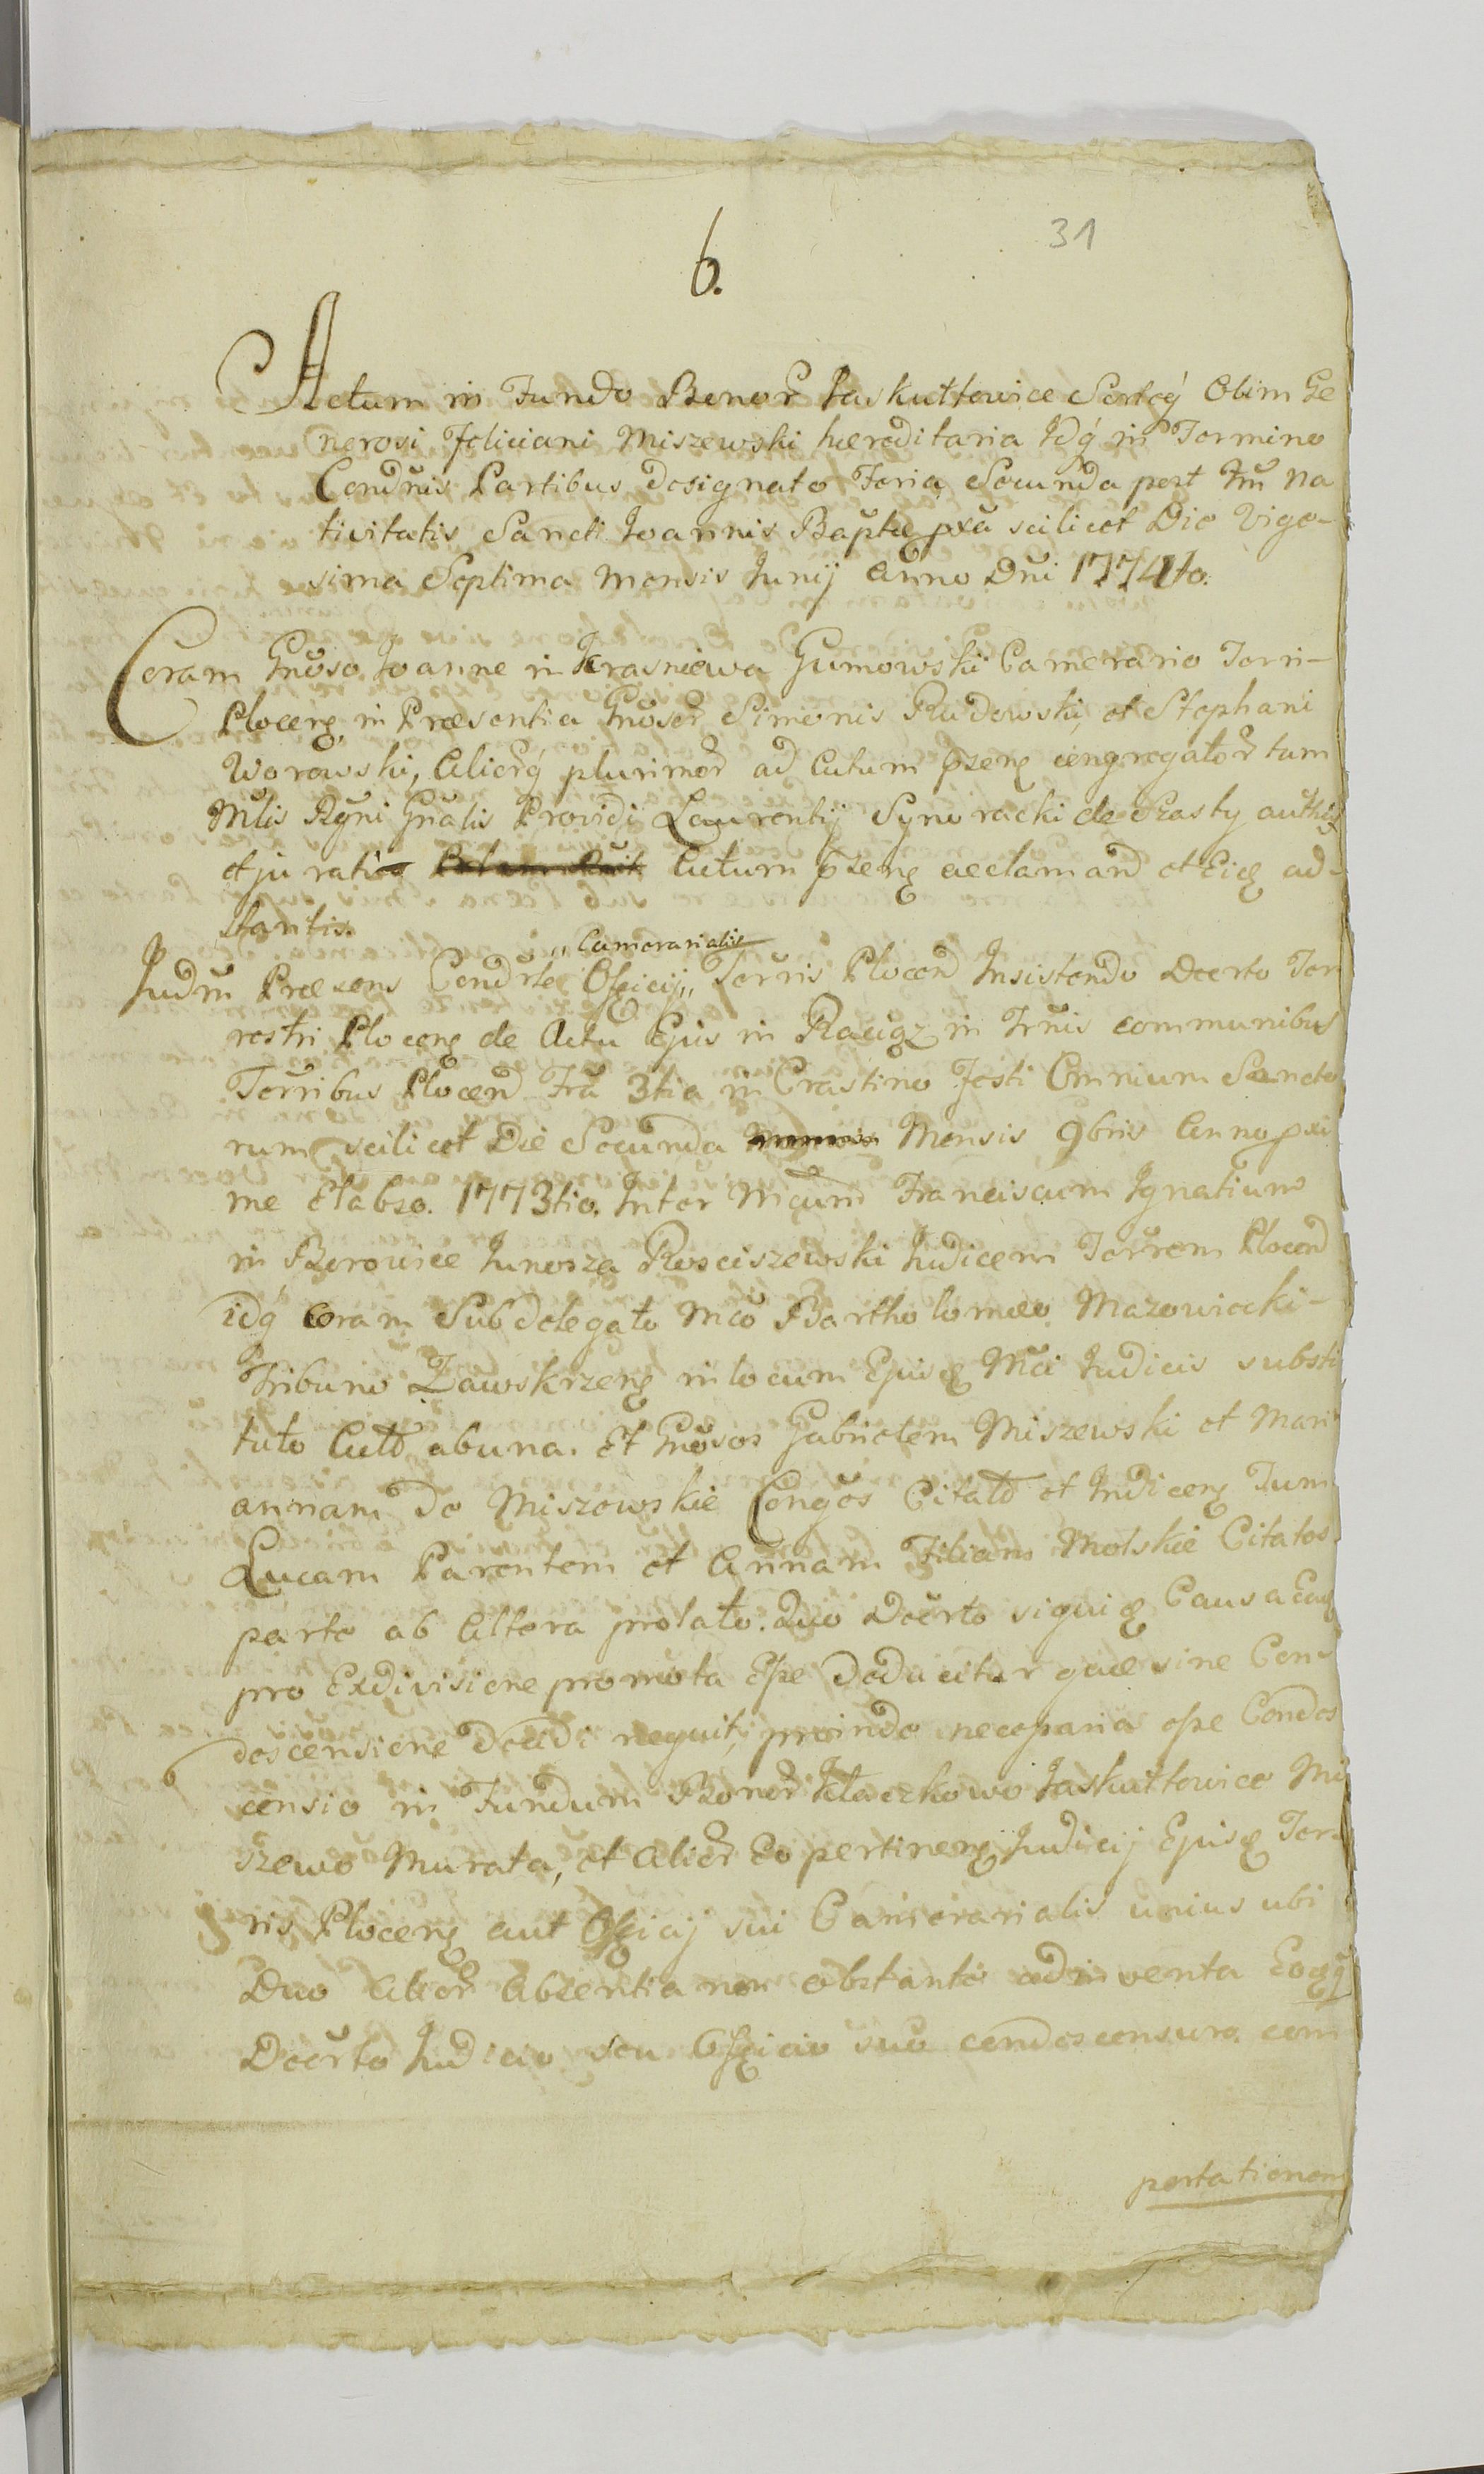 31
6.
Actum in Fundo Bonor Jaskułtowice Sorteq̃ Olim Ge
nerosi Feliciani Miszewski hæreditaria Idq̃ in Termino
Condñis Partibus designato Feria Secunda post Ftũ Na
tivitatis Sancti Joannis Baptæ pxã scilicet Die Vige-
sima Septima Mensis Junij Anno Dñi 1774to.
Coram Gnõso Joanne in Krasniewa Gumowski Camerario Terri-
Plocen̄, in Præsentia Gnõsor Simonis Rudowski, et Stephani
Worowski, Aliorq̃ plurimor ad Actum p̃zen̄ congregator tam
Mtlis Rg̃ni Gñalis Providi Laurentij Syneracki de Szasty auth
et jurati Actum p̃zen̄ acclaman̄ et Eid ad-
stantis.
"Camerarialis
Judm̃ Præsens Condr̃te Officij" Terris Plocen̄ Insistendo Dcerto Ter
restri Plocen̄ de Actu Ejus in Raciąz in Trm̃is communibus
Terribus Plocen̄ Fr̃a 3tia in Crastino Festi Omnium Sancto
rum scilicet Die Secunda Mensis 9bris Anno pxi
me Elabso. 1773tio. Inter Mcum̃ Franciscum Ignatium
in Borowice Junosza Rosciszewski Judicem Terrem Plocen̄
idq̃ coram Subdelegato Mcõ Bartholomæo Mazowiecki-
Tribuno Zawskrzen̄ in locum Ejusd Mci Judicis substi
tuto Actõ ab una. Et Gnõsos Gabrielem Miszewski et Mari
annam De Miszewskie Congõs Citatõ et Indicen̄ Tum
Lucam Parentem et Annam Filiam Molskie Citatos
parte ab Altera prolato. Quo Dcerto siquid Causa Ead
pro Exdivisione promota Esse Deducitur quæ sine Con-
descensione Decidi nequit, proinde necessaria esse Condes
censio in Fundum Bonor Kłaczkowo Jaskułtowice Mi
szewo Murata, et Alior Eo pertinen̄ Judicij Ejusd Ter-
ris Plocen̄ aut Officij sui Camerarialis unius ubi
Duo Alior Absentia non obstante adinventa Eoqq̃
Dcerto Judicio seu Officio suo condescensuro. com
portationem